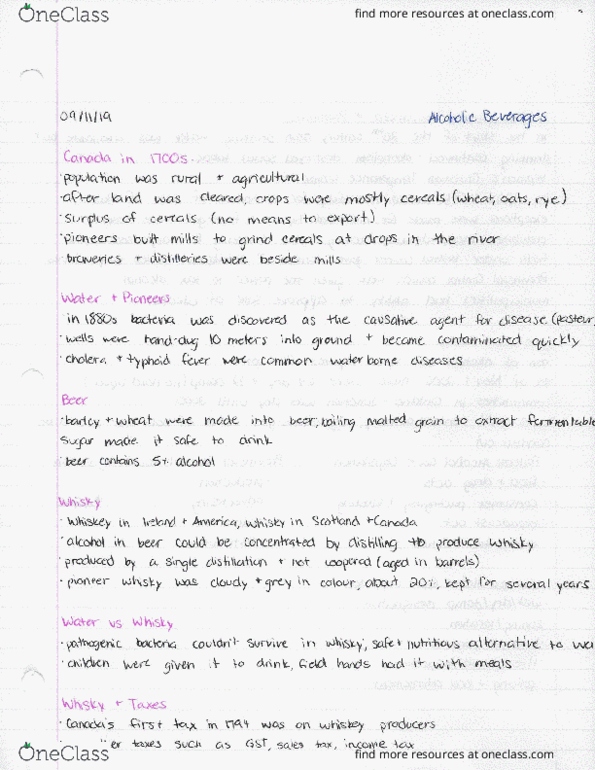 OneClass find more resources at oneclass.com
09/11/19 Alcoholic Beverages
Canada in 1700s.
·population was rural + agricultural
·after land was cleared, crops were mostly cereals (wheat, oats, rye)
·surplus of cereals (no means to export)
·pioneers built mills to grind cereals at drops in the river
·breweries + distilleries were beside mills
Water + Pioneers
·in 1880s bacteria was discovered as the causative agent for disease (pasteur,
·wells were hand-dug 10 meters into ground + became contaminated quickly
·cholera + typhoid fever were common waterborne diseases
Beer
·barley + wheat were made into beer; boiling malted grain to extract fermentable
sugar made it safe to drink
·beer contains 5% alcohol
Whisky
·whiskey in Ireland + America, whisky in Scotland + Canada
·alcohol in beer could be concentrated by distilling to produce whisky
·produced by a single distillation + not coopered (aged in barrels)
·pioneer whisky was cloudy + grey in colour, about 20%, kept for several years
Water vs Whisky
·pathogenic bacteria couldn't survive in whisky; safe + nutritious alternative to wa
·children were given it to drink, field hands had it with meals
Whisky + Taxes
·Canada's first tax in 1794 was on whiskey producers
taxes such as GST, sales tax, income tax
OneClass find more resources at oneclass.com